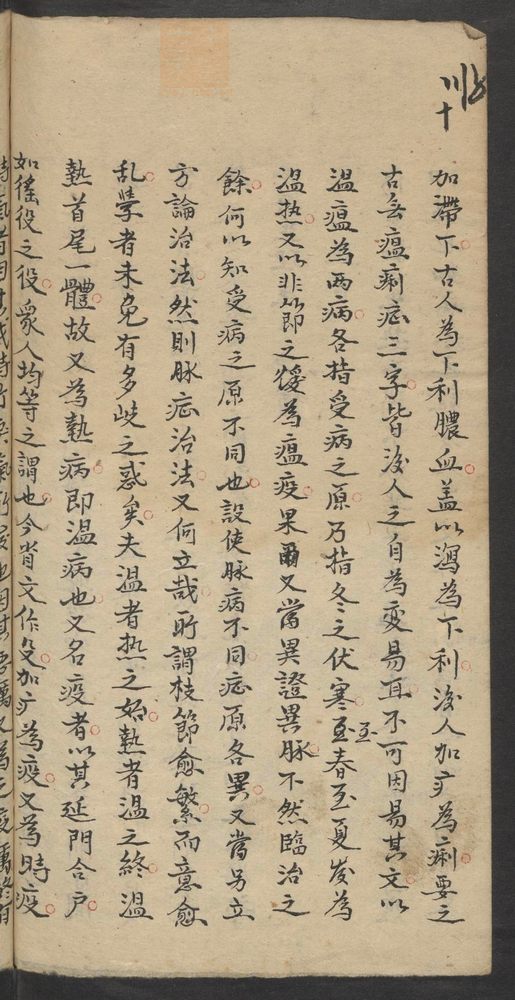 加滯下古人為下利膿血盖以瀉為下利後人加疒為痢要之
古無瘟痢症三字皆後人之自為變易耳不可因易其文以
温瘟為两病各指受病之原乃指冬之伏寒至春至夏發為
温热又以非節之煖為瘟疫果爾又當異證異脉不然臨治之
餘何以知受病之原不同也設使脉病不同症原各異又當另立
方論治法然則脉症治法又何立哉所謂枝節愈繁而意愈
乱學者未免有多岐之惑矣夫温者热之始熱者温之終温
熱首尾一體故又為熱病即温病也又名疫者以其延門合户
如徭役之役衆人均等之謂也今省文作殳加疒為疫又為時疫